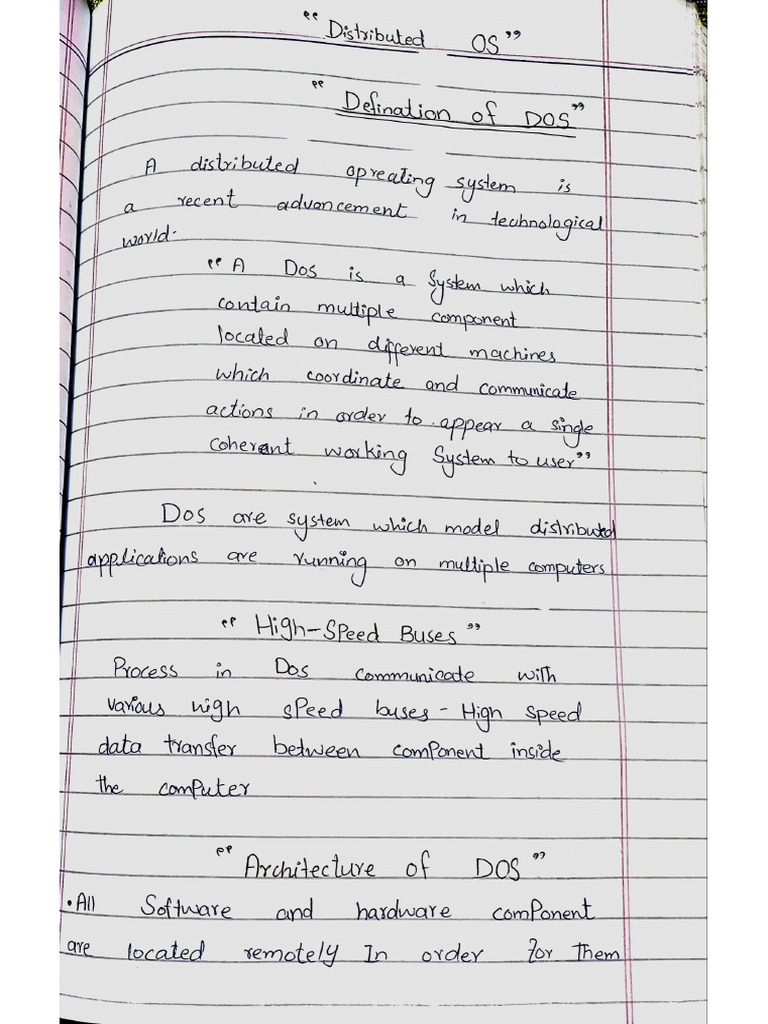 “ Distributed OS ”
“ Defination of DOS ”
A distributed opreating system is
a recent advancement in technological
world.
“ A Dos is a System which
contain multiple component
located on different machines
which coordinate and communicate
actions in order to appear a single
coherent working System to user ”
Dos are system which model distributed
applications are running on multiple computers
“ High-Speed Buses ”
Process in Dos communicate with
various high speed buses - High Speed
data transfer between component inside
the computer
“ Architecture of DOS ”
• All Software and hardware component
are located remotely In order for them